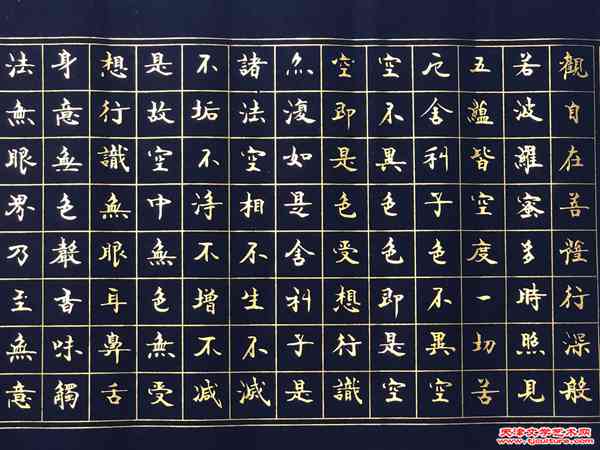 觀自在菩薩行深般
若波羅蜜多時照見
五蘊皆空度一切苦
厄舍利子色不異空
空不異色色即是空
空即是色受想行識
亦復如是舍利子是
諸法空相不生不滅
不垢不淨不增不減
是故空中無色無受
想行識無眼耳鼻舌
身意無色聲香味觸
法無眼界乃至無意
天津文学艺术网